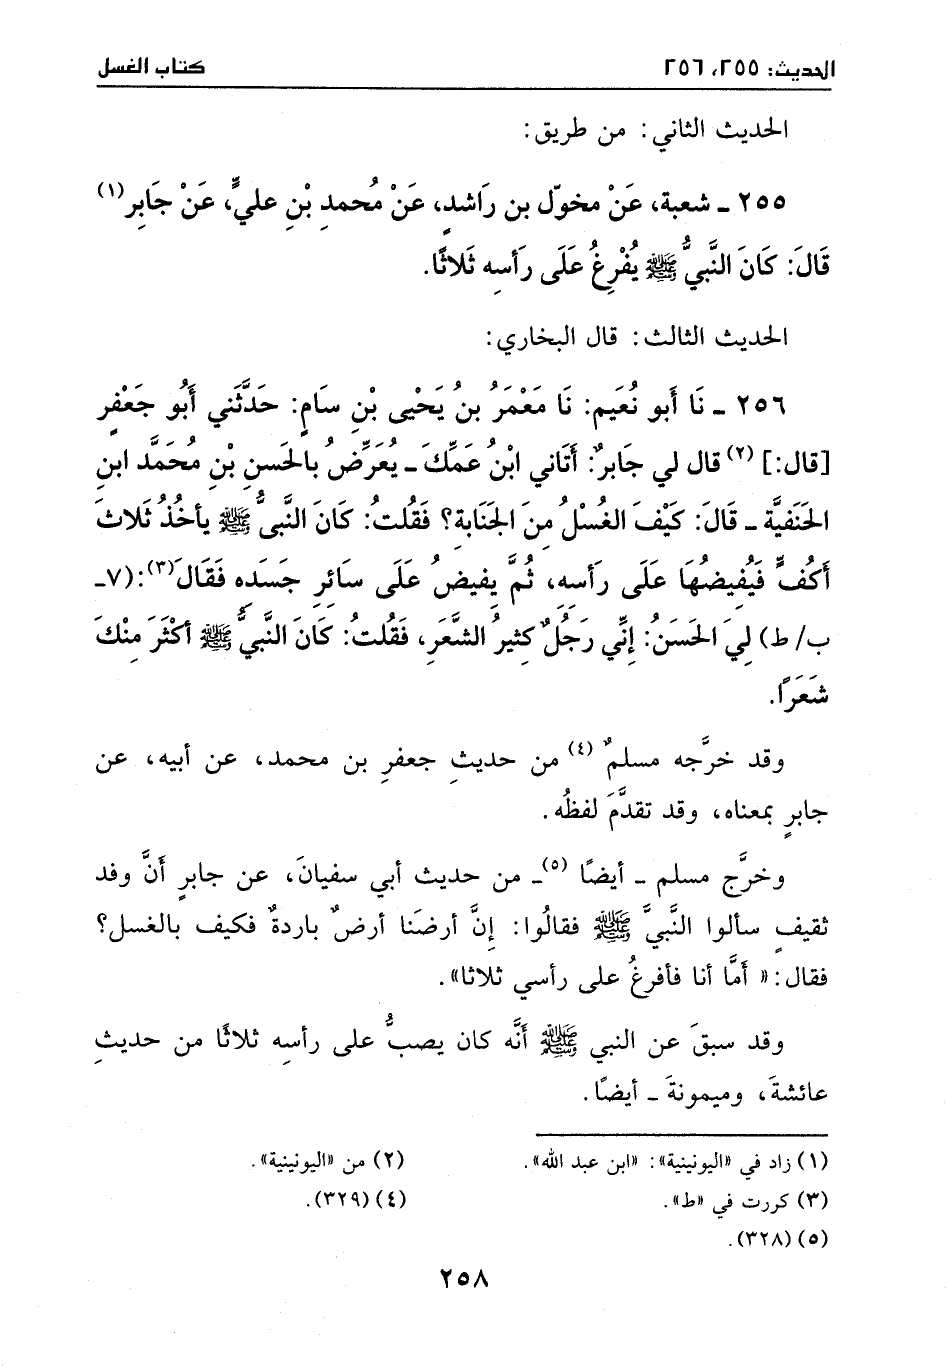 الحديث: ٢٥٥، ٢٥٦ كتاب الغسل
الحديث الثاني: من طريق:
٢٥٥ ـ شعبة، عَنْ مخوّل بن رَاشدٍ، عَنْ مُحمدِ بْنِ عليٍّ، عَنْ جَابِر(١)
قَالَ: كَانَ النَّبيُّ ﷺ يُفْرِغُ عَلَى رَأسِه ثَلاثًا.
الحديث الثالث: قال البخاري:
٢٥٦ ـ نَا أَبو نُعَيم: نَا مَعْمَرُ بنُ يَحْيى بْنِ سَامٍ: حَدَّثَني أَبُو جَعْفرٍ
[قال:] (٢) قال لي جَابرٌ: أَتَاني ابْنُ عَمِّكَ ـ يُعَرِّضُ بالحَسنِ بْنِ مُحمَّد ابنِ
الحَنَفيَّة ـ قَالَ: كَيْفَ الغُسْلُ مِنَ الجَنَابة؟ فَقُلتُ: كَانَ النَّبيُّ ﷺ يأخُذُ ثَلاث
أَكُفٍّ فَيُفِيضُهَا عَلَى رَأسه، ثُمَّ يفِيضُ عَلَى سَائرِ جَسَدِه فَقَالَ(٣): (٧ـ
ب/ ط) لِيَ الحَسَنُ: إِنِّي رَجُلٌ كَثِيرُ الشَّعَرِ، فَقُلتُ: كَانَ النَّبيُّ ﷺ أَكْثَرَ مِنْكَ
شَعَرًا.
وقد خرَّجه مسلمٌ (٤) من حديثِ جعفرِ بن محمد، عن أبيه، عن
جابرٍ بمعناه، وقد تقدَّمَ لفظُه.
وخرَّج مسلم ـ أيضًا (٥)ـ من حديث أبي سفيانَ، عن جابرٍ أنَّ وفد
ثقيفٍ سألوا النَّبيَّ ﷺ فقالُوا: إنَّ أرضَنا أرضٌ باردةٌ فكيف بالغسل؟
فقال: « أَمَّا أنا فأفرغُ على رأسي ثلاثا».
وقد سبقَ عن النبي ﷺ أنَّه كان يصبُّ على رأسِه ثلاثًا من حديثِ
عائشةَ، وميمونةَ ـ أيضًا.
(١) زاد في «اليونينية»: «ابن عبد الله». (٢) من «اليونينية».
(٣) كررت في «ط». (٤) (٣٢٩).
(٥) (٣٢٨).
٢٥٨